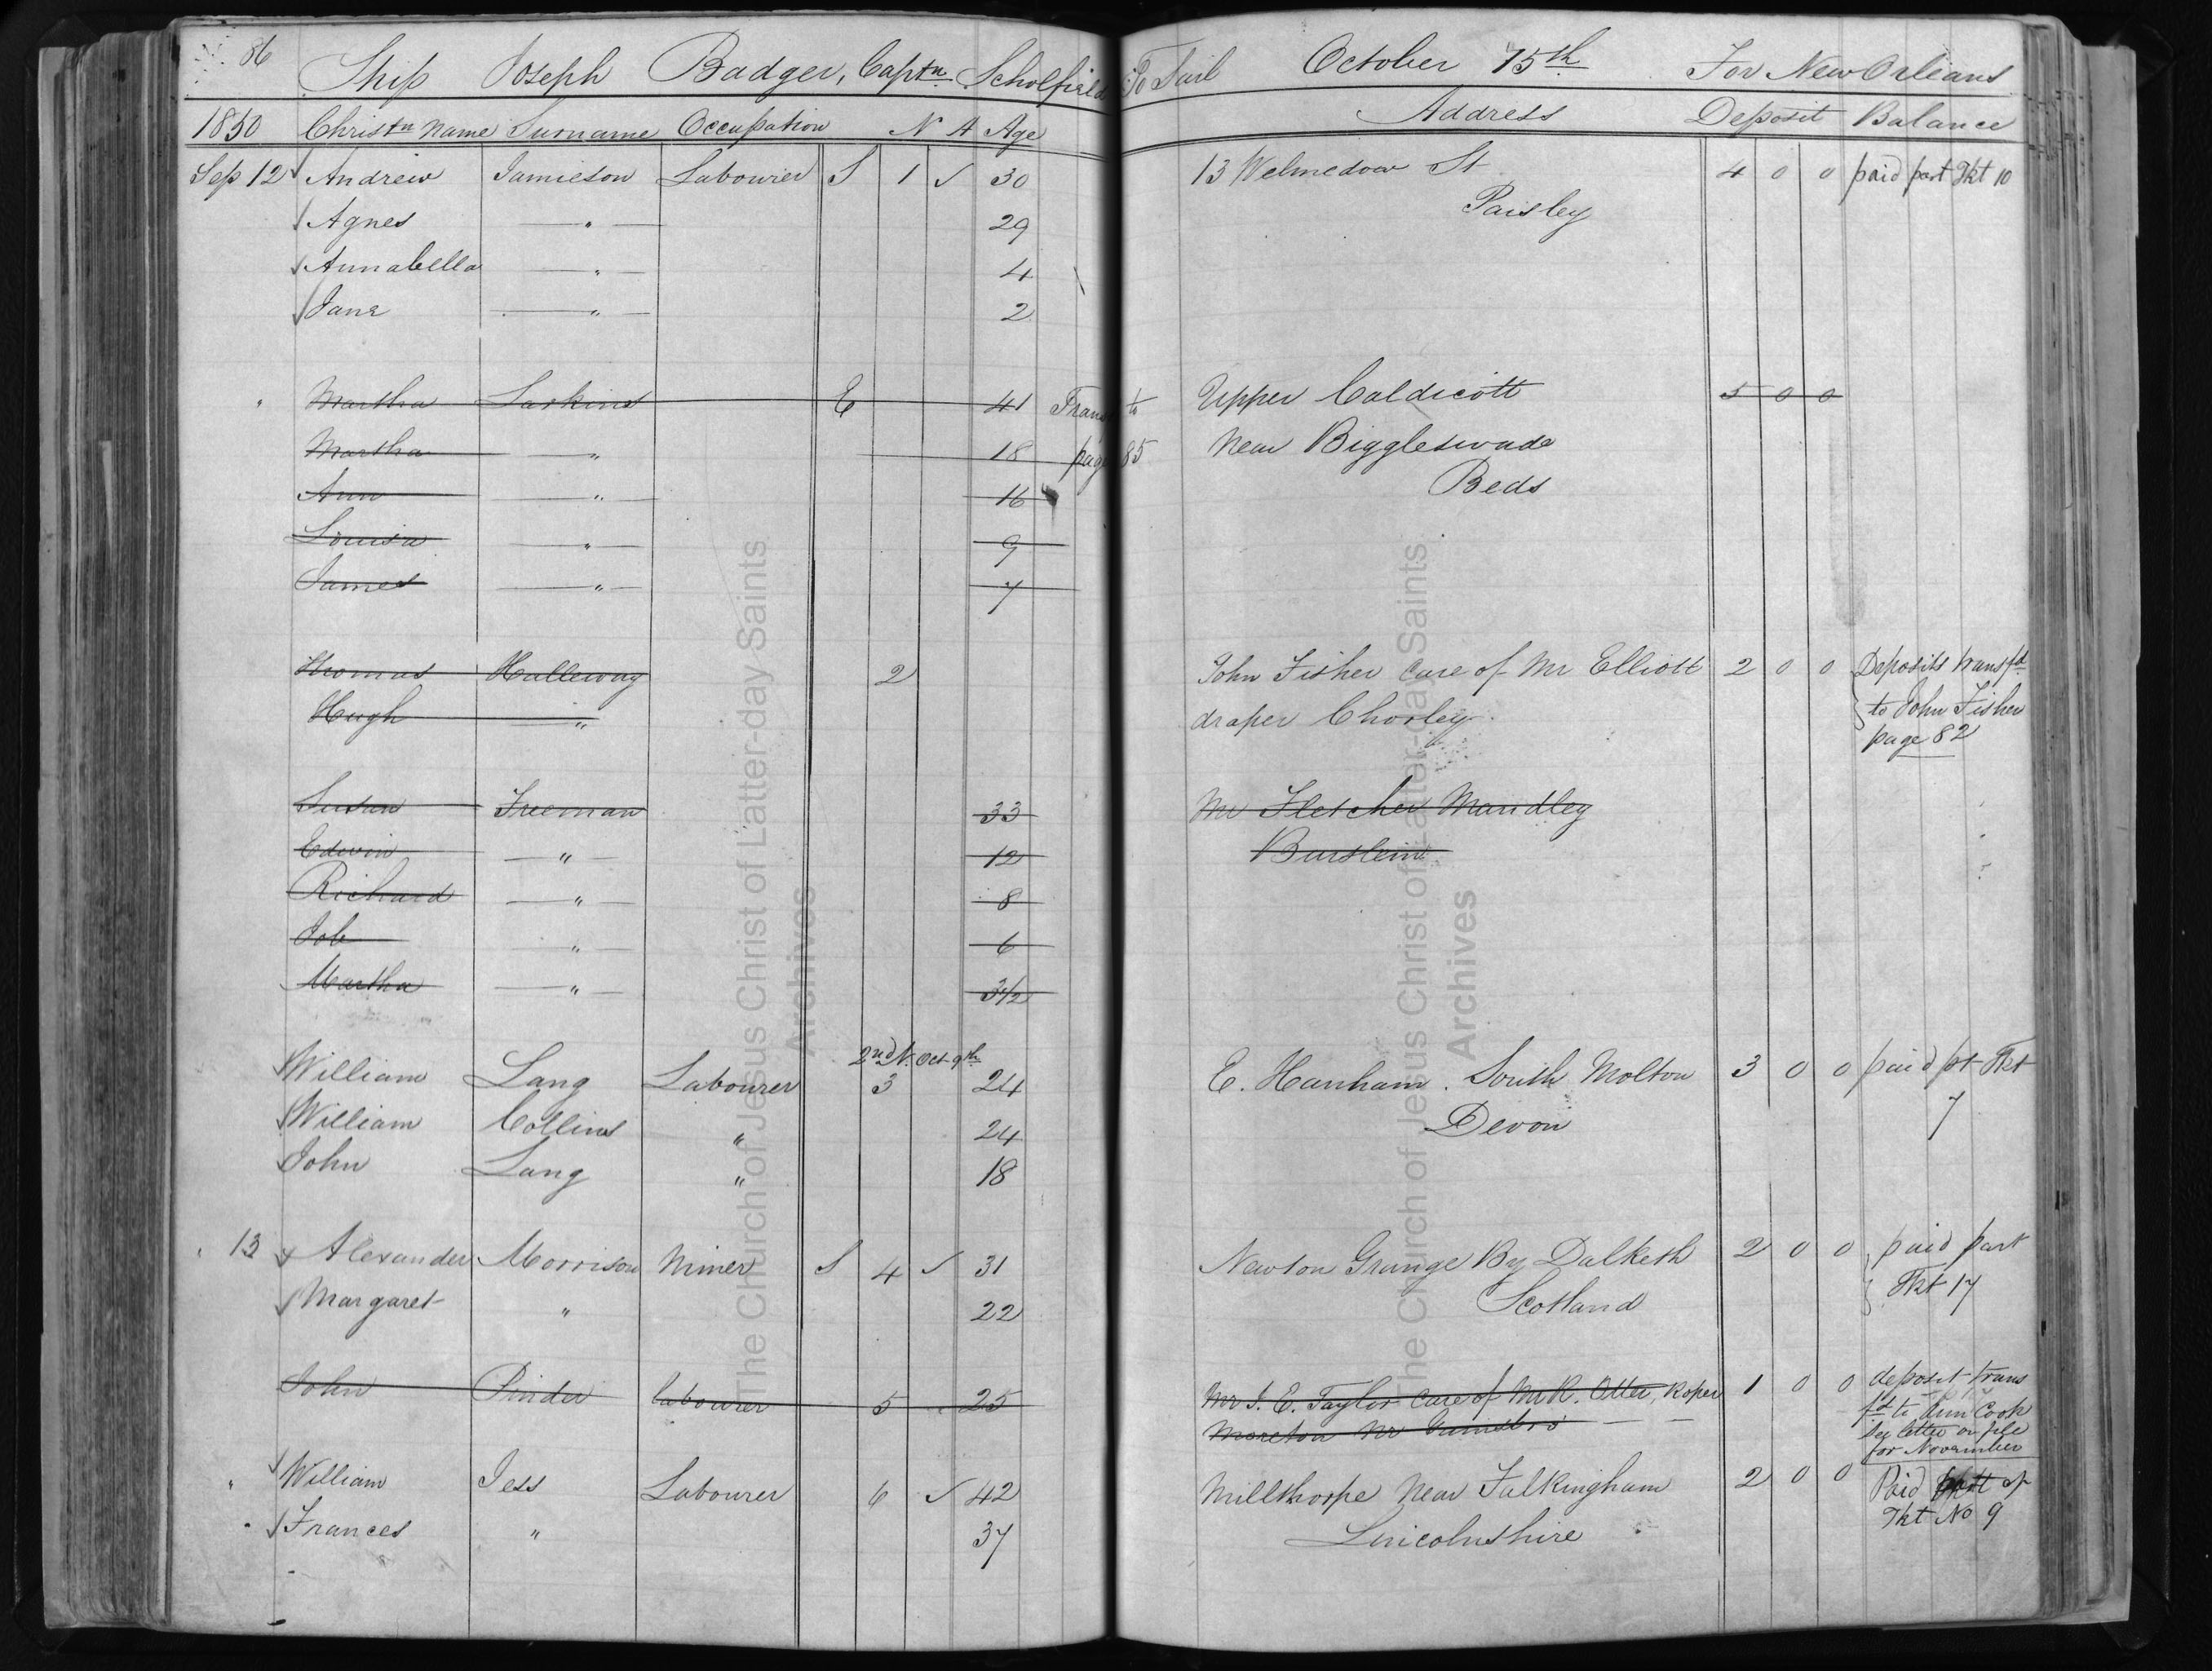 86 Ship Joseph Badger, Captn. Scholfield To Sail October 15th For New Orleans
1850 Christn Name Surname Occupation N A Age Address Deposit Balance
Sep 12 Andrew Jamieson Labourer S 1 ✓ 30 13 Welmedow St 4 0 0 paid part Tkt 10
Agnes " 29 Paisley
Annabella " 4
Jane " 2
" Martha Larkins E 41 Trans to Upper Caldicott 5 0 0
Martha " 18 page 85 Near Biggleswade
Ann " 16 Beds
Louisa " 9
James " 7
Thomas Halleway 2 John Fisher care of Mr Elliott 2 0 0 Deposits transfd
Hugh " draper Chorley to John Fisher
page 82
Susan Freeman 33 Mr Fletcher Mandley
Edwin " 12 Burslem
Richard " 8
Job " 6
Martha " 3 1/2
2nd N. Oct 9th
William Lang Labourer 3 24 E. Hanham. South Molton 3 0 0 paid pt Tkt
William Collins " 24 Devon 7
John Lang " 18
" 13 Alexander Morrison Miner S 4 ✓ 31 Newton Grange By Dalketh 2 0 0 paid part
Margaret " 22 Scotland Tkt 17
John Pinder labourer 5 25 Mr J. E. Taylor care of Mr R. Otter, Roper 1 0 0 deposit trans
Moreton Nr Gainsbro fd to Ann Cook
See letter on file
for November
" William Jess Labourer 6 ✓ 42 Millthorpe Near Falkingham 2 0 0 Paid part of
" Frances " 37 Lincolnshire Tkt No 9
The Church of Jesus Christ of Latter-day Saints
Archives
The Church of Jesus Christ of Latter-day Saints
Archives